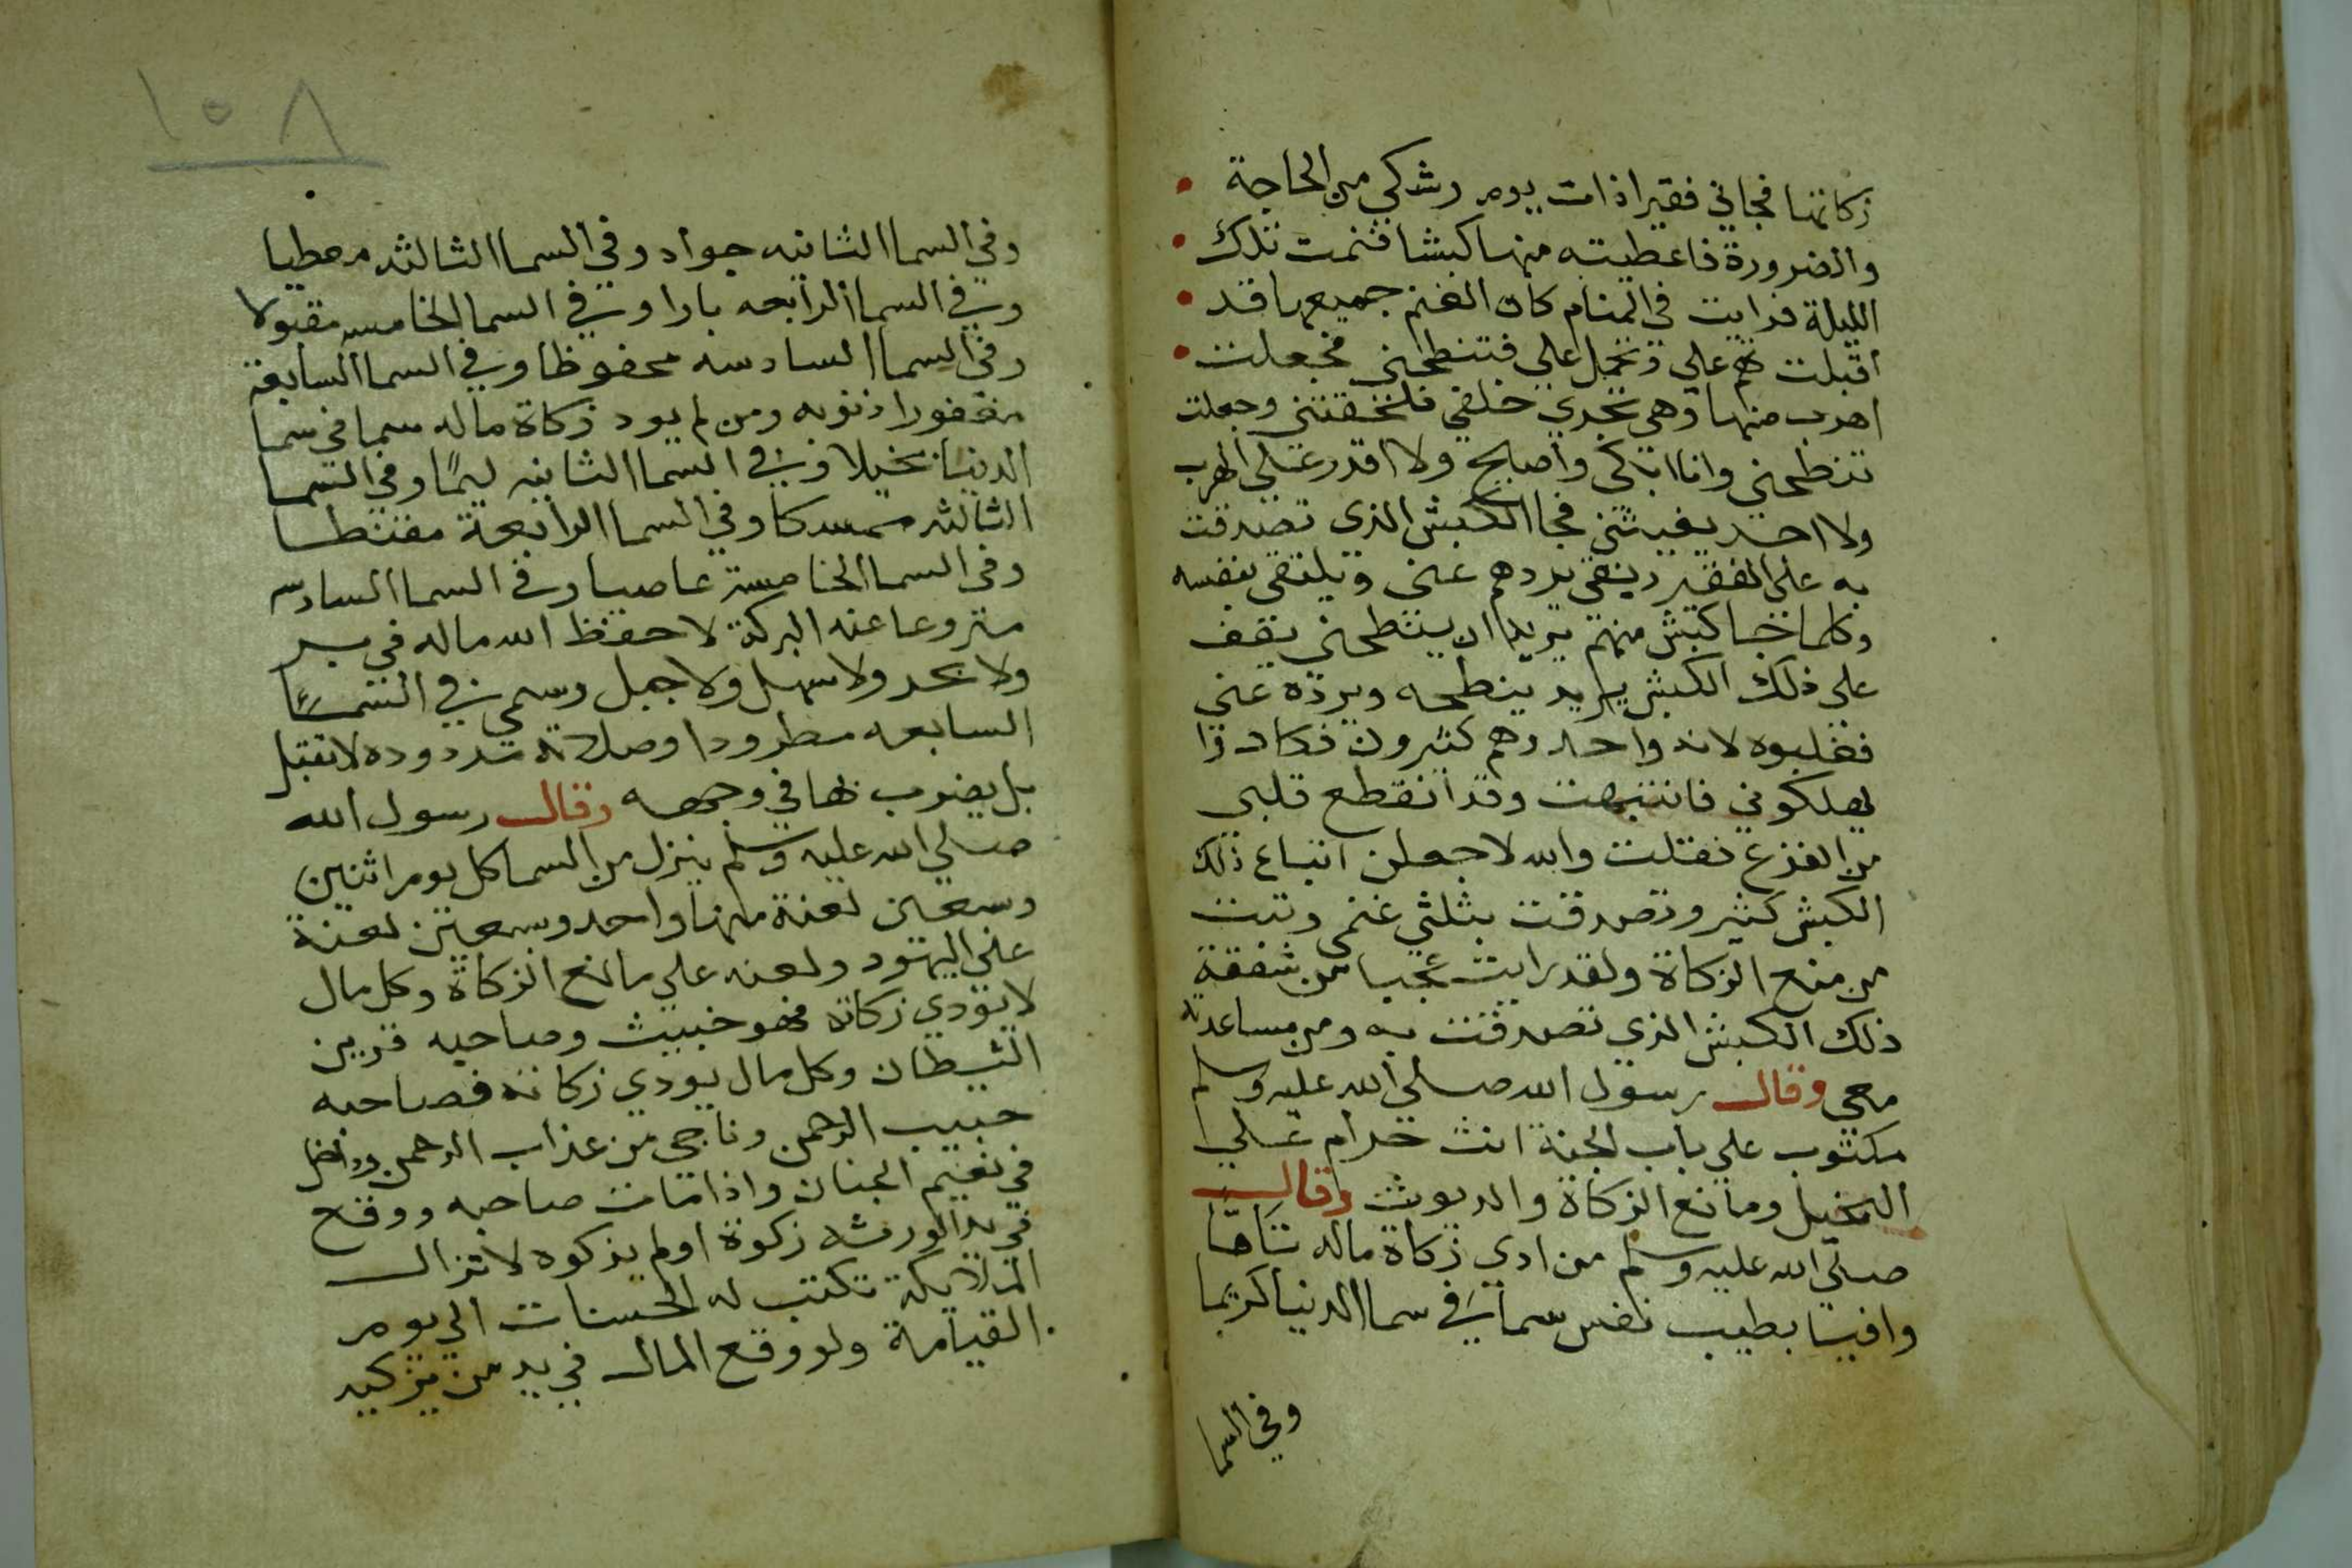 زكاتها فجاني فقيرا ذات يوم وشكي من الحاجة
والضرورة فاعطيته منها كبشا فنمت تلك
الليلة فرايت في المنام كان الغنم جميعها قد
اقبلت علي وتحمل علي فتنطحني فجعلت
اهرب منها وهي تجري خلفي فلحقتني وجعلت
تنطحني وانا ابكي واصايح ولا اقدر علي الهرب
ولا احد يغيثني فجا الكبش الذي تصدقت
به علي الفقير وبقي يردهم عني ويلتقي بنفسه
وكلما جا كبش منهم يريد ان ينطحني يقف
علي ذلك الكبش يريد ينطحه ويرده عني
فغلبوه لانه واحد وهم كثيرون فكادوا
يهلكوني فانتبهت وقد انقطع قلبي
من الفزع فقلت والله لاجعلن اتباع ذلك
الكبش كثير وتصدقت بثلثي غنمي وتبت
من منع الزكاة ولقد رايت عجبا من شفقة
ذلك الكبش الذي تصدقت به ومن مساعدته
معي وقال رسول الله صلي الله عليه وسلم
مكتوب علي باب الجنة انت حرام علي
البخيل ومانع الزكاة والديوث وقال
صلي الله عليه وسلم من ادي زكاة ماله تاما
وافيا بطيب نفس سما في سما الدنيا كريما
وفي السما
١٥٨
وفي السما الثانيه جواد وفي السما الثالثه معطيا
وفي السما الرابعه بارا وفي السما الخامسه مقبولا
وفي السما السادسه محفوظا وفي السما السابعة
مغفورا ذنوبه ومن لم يود زكاة ماله سما في سما
الدنيا بخيلا وفي السما الثانيه ليما وفي السما
الثالثه ممسكا وفي السما الرابعة مقنطا
وفي السما الخامسة عاصيا وفي السما السادسه
منزوعا عنه البركة لا حفظ الله ماله في بر
ولا بحر ولا سهل ولا جبل وسمي في السما
السابعه مطرودا وصلاته مردوده لا تقبل
بل يضرب بها في وجهه وقال رسول الله
صلي الله عليه وسلم ينزل من السما كل يوم اثنين
وسبعين لعنة منها واحد وسبعين لعنة
علي اليهود ولعنه علي مانع الزكاة وكل مال
لا تودي زكاة فهو خبيث وصاحبه قرين
الشيطان وكل مال يودي زكاته فصاحبه
حبيب الرحمن وناجي من عذاب الرحمن
في نعيم الجنان واذا مات صاحبه ووقع
في يد الورثه زكوة او لم يزكوه لا تزال
الملايكة تكتب له الحسنات الي يوم
القيامة ولو وقع المال في يد من يزكيه